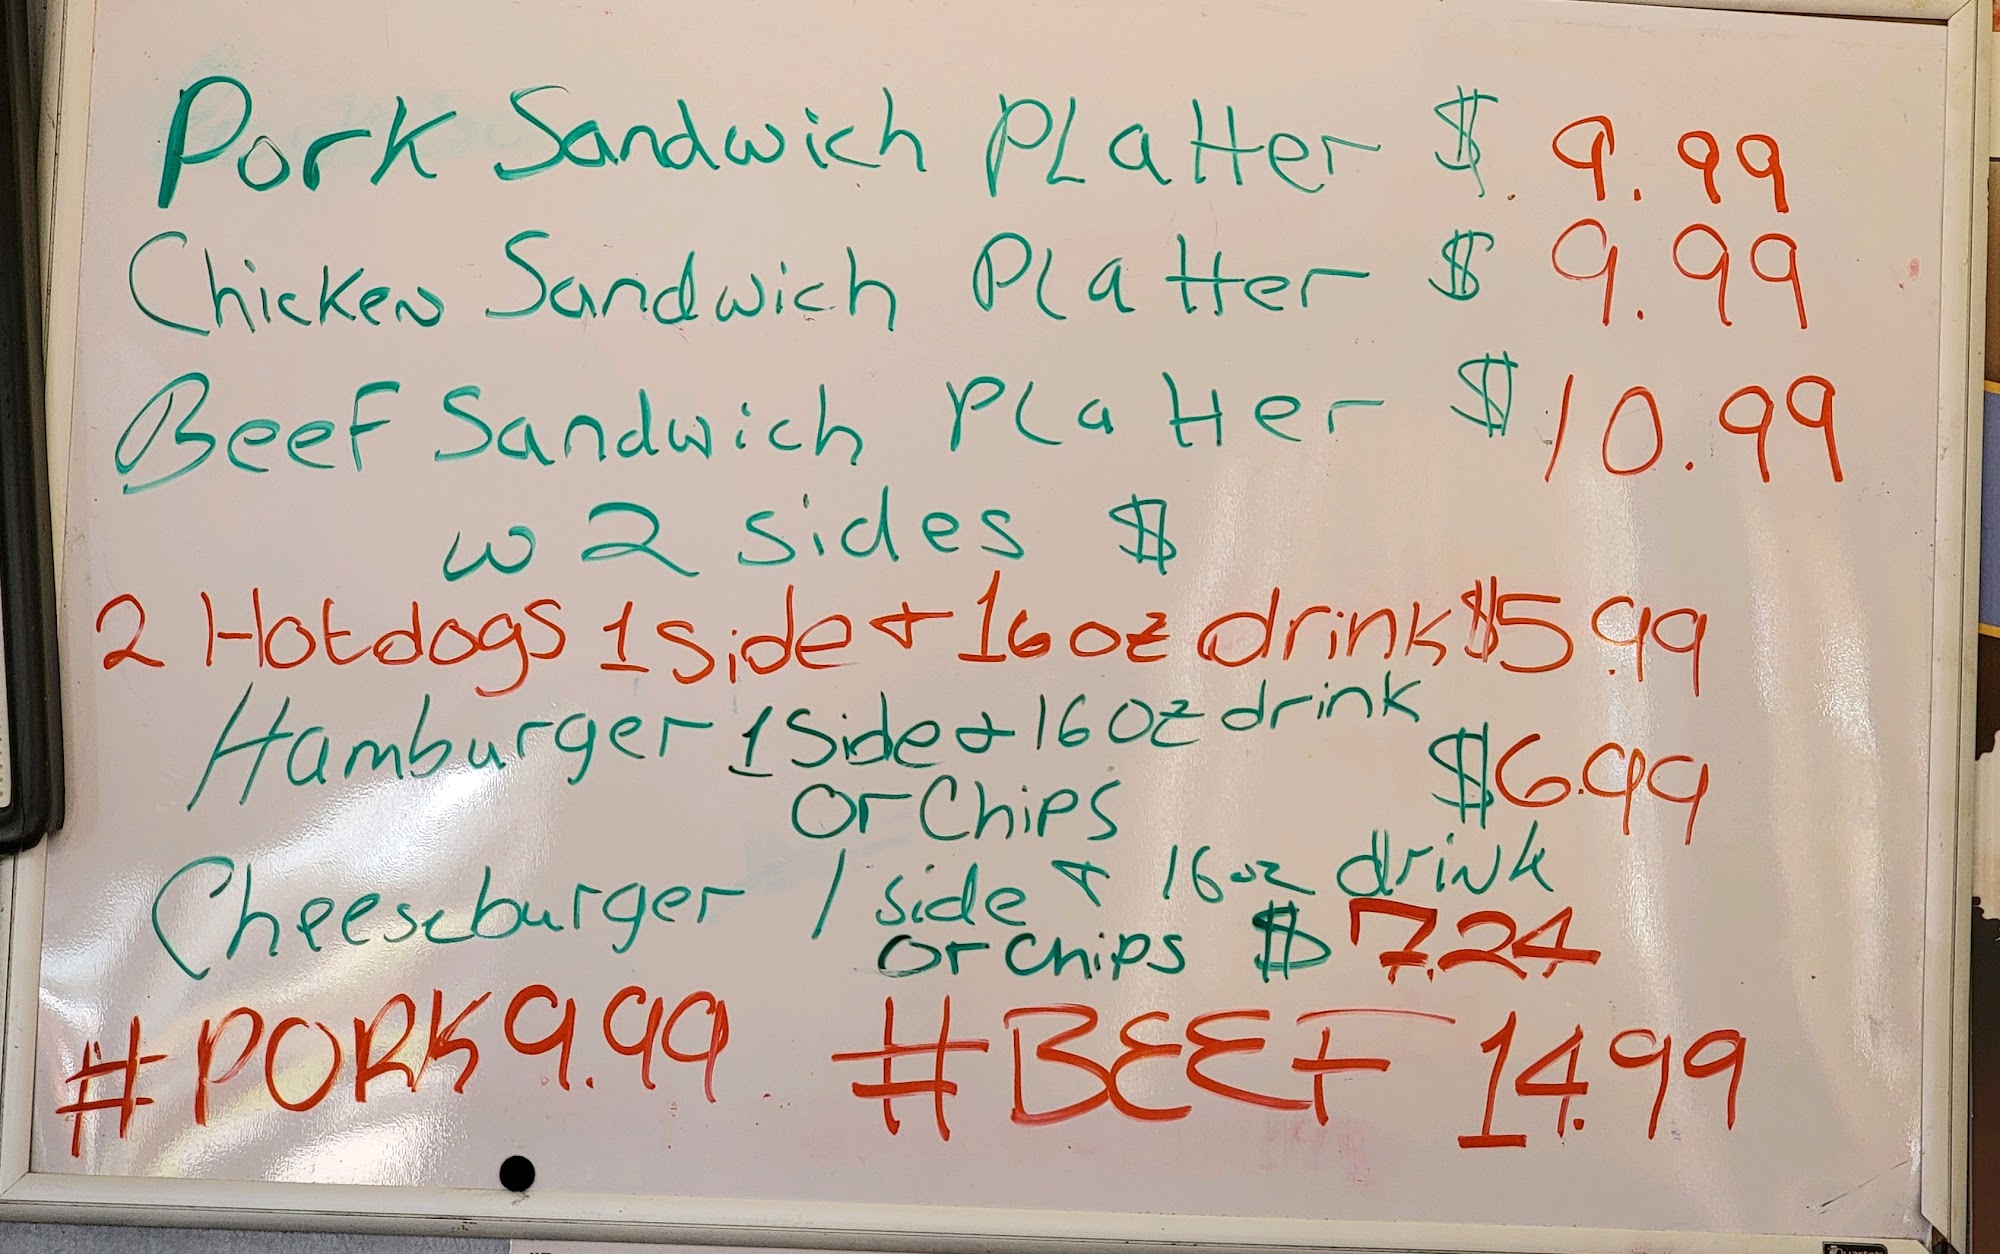 Pork Sandwich Platter $ 9.99
Chicken Sandwich Platter $ 9.99
Beef Sandwich Platter $ 10.99
w 2 sides $
2 Hotdogs 1 side & 16oz drink $5.99
Hamburger 1 Side & 16oz drink
or Chips $6.99
Cheeseburger 1 side & 16oz drink
or chips $ 7.24
#PORK 9.99 #BEEF 14.99